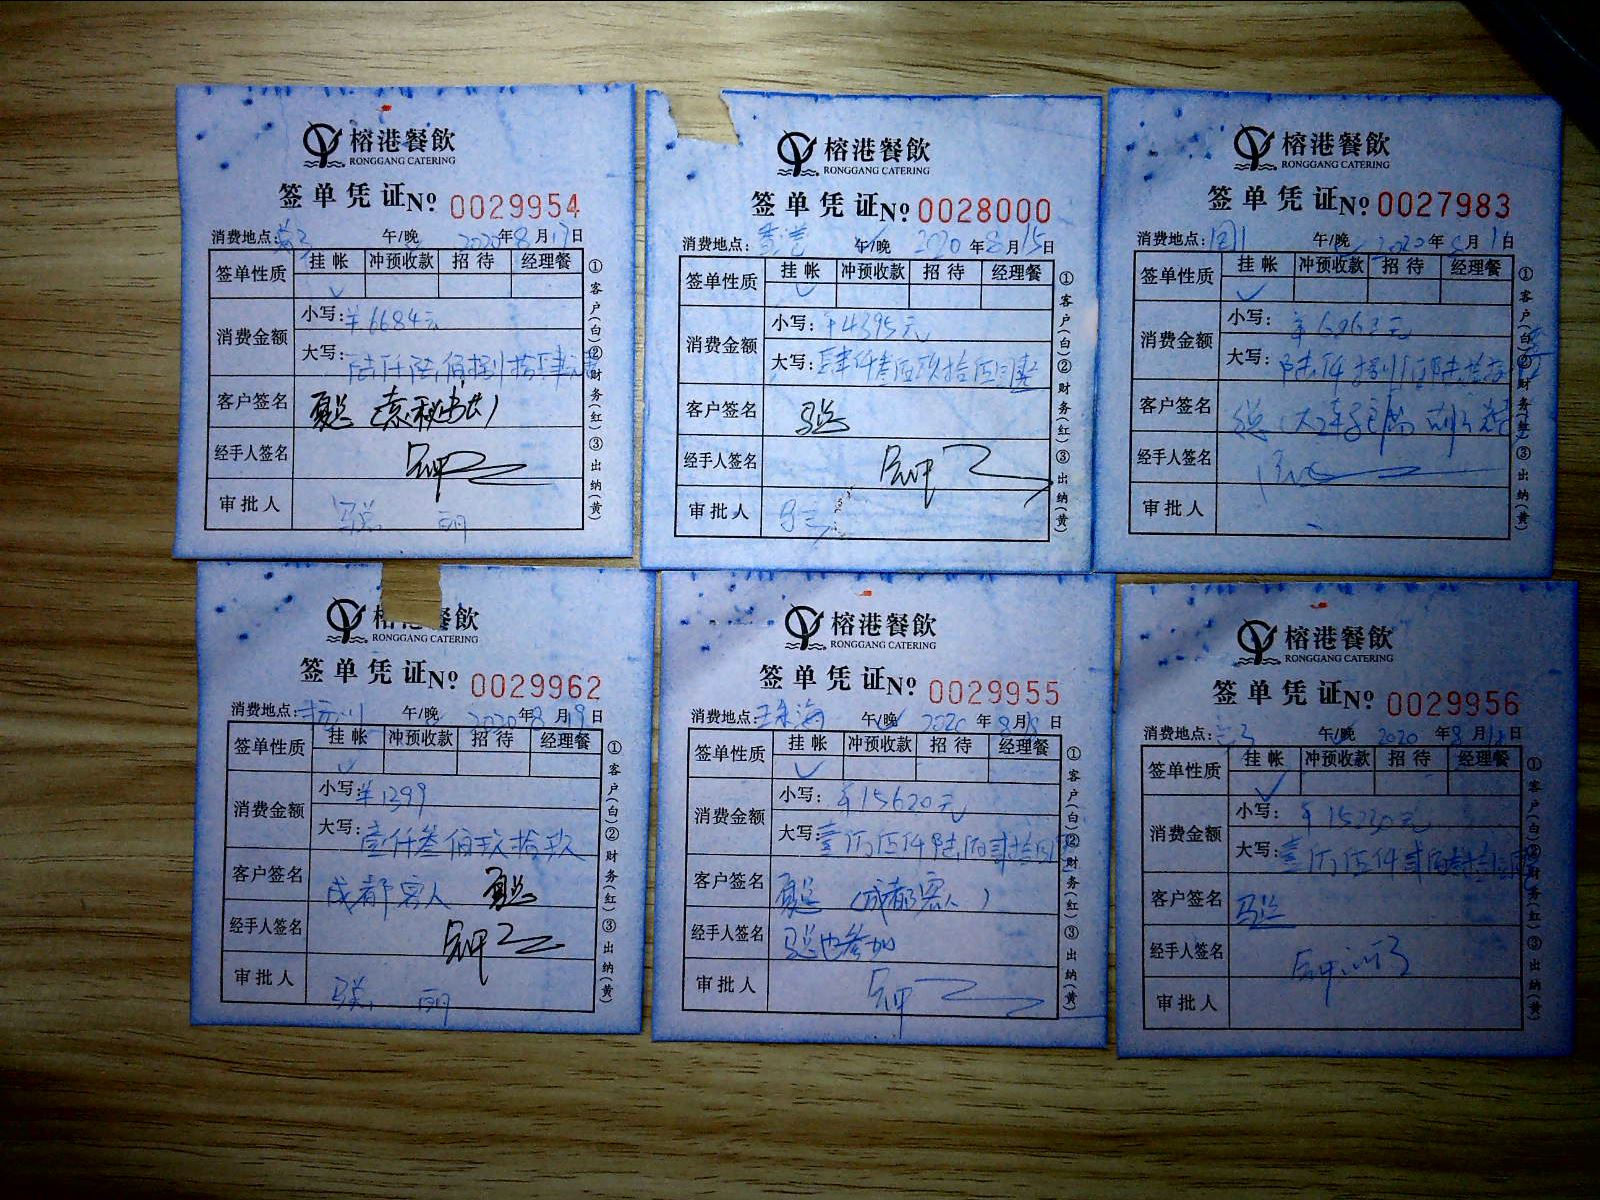 榕港餐飲
RONGGANG CATERING
签单凭证 No 0029954
消费地点: 午/晚 2020年8月17日
签单性质 挂帐 冲预收款 招待 经理餐
✓
消费金额 小写: ¥6684元
大写: 陆仟陆佰捌拾肆元
客户签名
经手人签名
审批人 马总
①客户(白)②财务(红)③出纳(黄)
榕港餐飲
RONGGANG CATERING
签单凭证 No 0028000
消费地点: 香港 午/晚 2020年8月15日
签单性质 挂帐 冲预收款 招待 经理餐
✓
消费金额 小写: ¥4395元
大写: 肆仟叁佰玖拾伍元整
客户签名 马总
经手人签名
审批人
①客户(白)②财务(红)③出纳(黄)
榕港餐飲
RONGGANG CATERING
签单凭证 No 0027983
消费地点: 午/晚 2020年8月1日
签单性质 挂帐 冲预收款 招待 经理餐
✓
消费金额 小写:
大写: 陆仟捌佰陆拾
客户签名
经手人签名
审批人
①客户(白)②财务(红)③出纳(黄)
榕港餐飲
RONGGANG CATERING
签单凭证 No 0029962
消费地点: 午/晚 2020年8月19日
签单性质 挂帐 冲预收款 招待 经理餐
✓
消费金额 小写: ¥1399
大写: 壹仟叁佰玖拾玖
客户签名 成都客人
经手人签名
审批人 马总
①客户(白)②财务(红)③出纳(黄)
榕港餐飲
RONGGANG CATERING
签单凭证 No 0029955
消费地点: 珠海 午/晚 2020年8月18日
签单性质 挂帐 冲预收款 招待 经理餐
✓
消费金额 小写: ¥15620元
大写: 壹万伍仟陆佰贰拾元
客户签名 (成都客人)
经手人签名 马总也参加
审批人
①客户(白)②财务(红)③出纳(黄)
榕港餐飲
RONGGANG CATERING
签单凭证 No 0029956
消费地点: 午/晚 2020年8月18日
签单性质 挂帐 冲预收款 招待 经理餐
✓
消费金额 小写: ¥15230元
大写: 壹万伍仟贰佰叁拾元整
客户签名 马总
经手人签名
审批人
①客户(白)②财务(红)③出纳(黄)